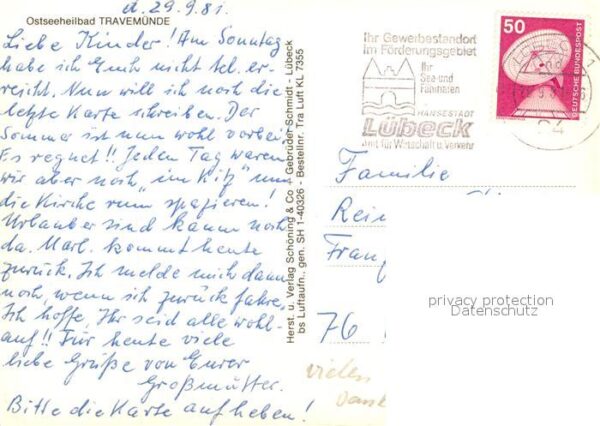 d. 29.9.81.
Ostseeheilbad TRAVEMÜNDE
Liebe Kinder! Am Sonntag
habe ich Euch nicht tel. er-
reicht. Nun will ich noch die
letzte Karte schreiben. Der
Sommer ist nun wohl vorbei.
Es regnet!! Jeden Tag waren
wir aber noch, "im Kitz" um
die Kirche rum spazieren!
Urlauber sind kaum noch
da. Marl. kommt heute
zurück. Ich melde mich dann
noch, wenn ich zurück fahre.
Ich hoffe, Ihr seid alle wohl-
auf!! Für heute viele
liebe Grüße von Eurer
Großmutter.
Bitte die Karte aufheben!
vielen
Dank
Herst. u. Verlag Schöning & Co + Gebrüder Schmidt - Lübeck
bs Luftaufn., gen. SH 1-40326 - Bestellnr. Tra Luft KL 7355
Ihr Gewerbestandort
im Fördergungsgebiet
Ihr
See-und
Fährhafen
HANSESTADT
Lübeck
Amt für Wirtschaft u. Verkehr
50
DEUTSCHE BUNDESPOST
Familie
Rein
Fran
76
privacy protection
Datenschutz